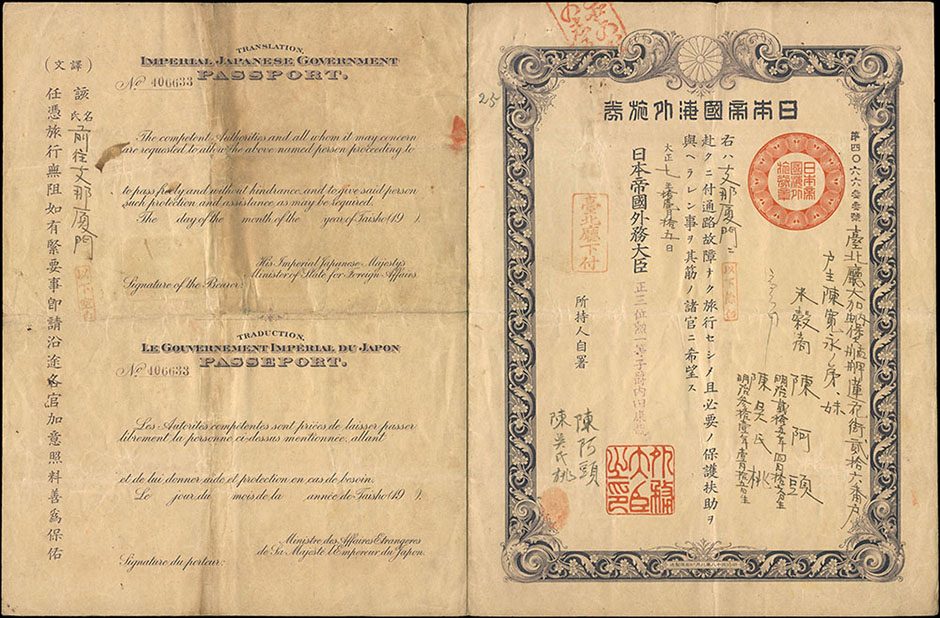 日本帝國海外旅券
第四〇六六參參號
臺北廳大加蚋保艋舺蓮花街貳拾六番戶
戶主陳寬永ノ弟、妹
米穀商
陳阿頭
明治貳拾五年四月拾六日生
陳吳氏桃
日本帝國海外旅券章
右ハ支那厦門ニ
赴クニ付通路故障ナク旅行セシメ且必要ノ保護扶助ヲ
與ヘラレン事ヲ其筋ノ諸官ニ希望ス
大正七年
拾五日
日本帝國外務大臣
正三位勳一等子爵內田康哉
臺北廳下付
所持人自署
陳阿頭
陳吳氏桃
外務大臣之印
25
TRANSLATION.
IMPERIAL JAPANESE GOVERNMENT
PASSPORT.
No 406633
The competent Authorities and all whom it may concern
are requested to allow the above named person proceeding to
to pass freely and without hindrance, and to give said person
such protection and assistance, as may be required.
The day of the month of the year of Taisho (19 ).
His Imperial Japanese Majesty's
Minister of State for Foreign Affairs.
Signature of the Bearer:
TRADUCTION.
LE GOUVERNEMENT IMPÉRIAL DU JAPON
PASSEPORT.
No 406633
Les Autorités compétentes sont priées de laisser passer
librement la personne ci-dessus mentionnée, allant
et de lui donner aide et protection en cas de besoin.
Le jour du mois de la année de Taisho (19 ).
Ministre des Affaires Etrangères
de Sa Majesté l'Empereur du Japon.
Signature du porteur:
(譯文)
該氏名前往支那厦門
任憑旅行無阻如有緊要事卽請沿途各官加意照料善爲保佑